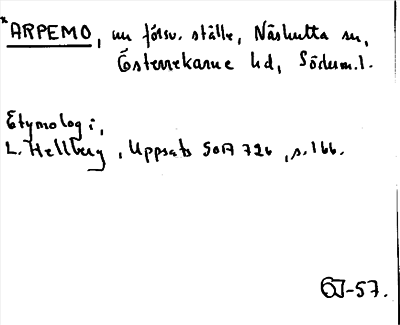 *ARPEMO, nu försv. ställe, Näshulta sn,
Österrekarne hd, Söderm.l.
Etymologi,
L. Hellberg, Uppsats SOA 726, s. 166.
GJ-57.